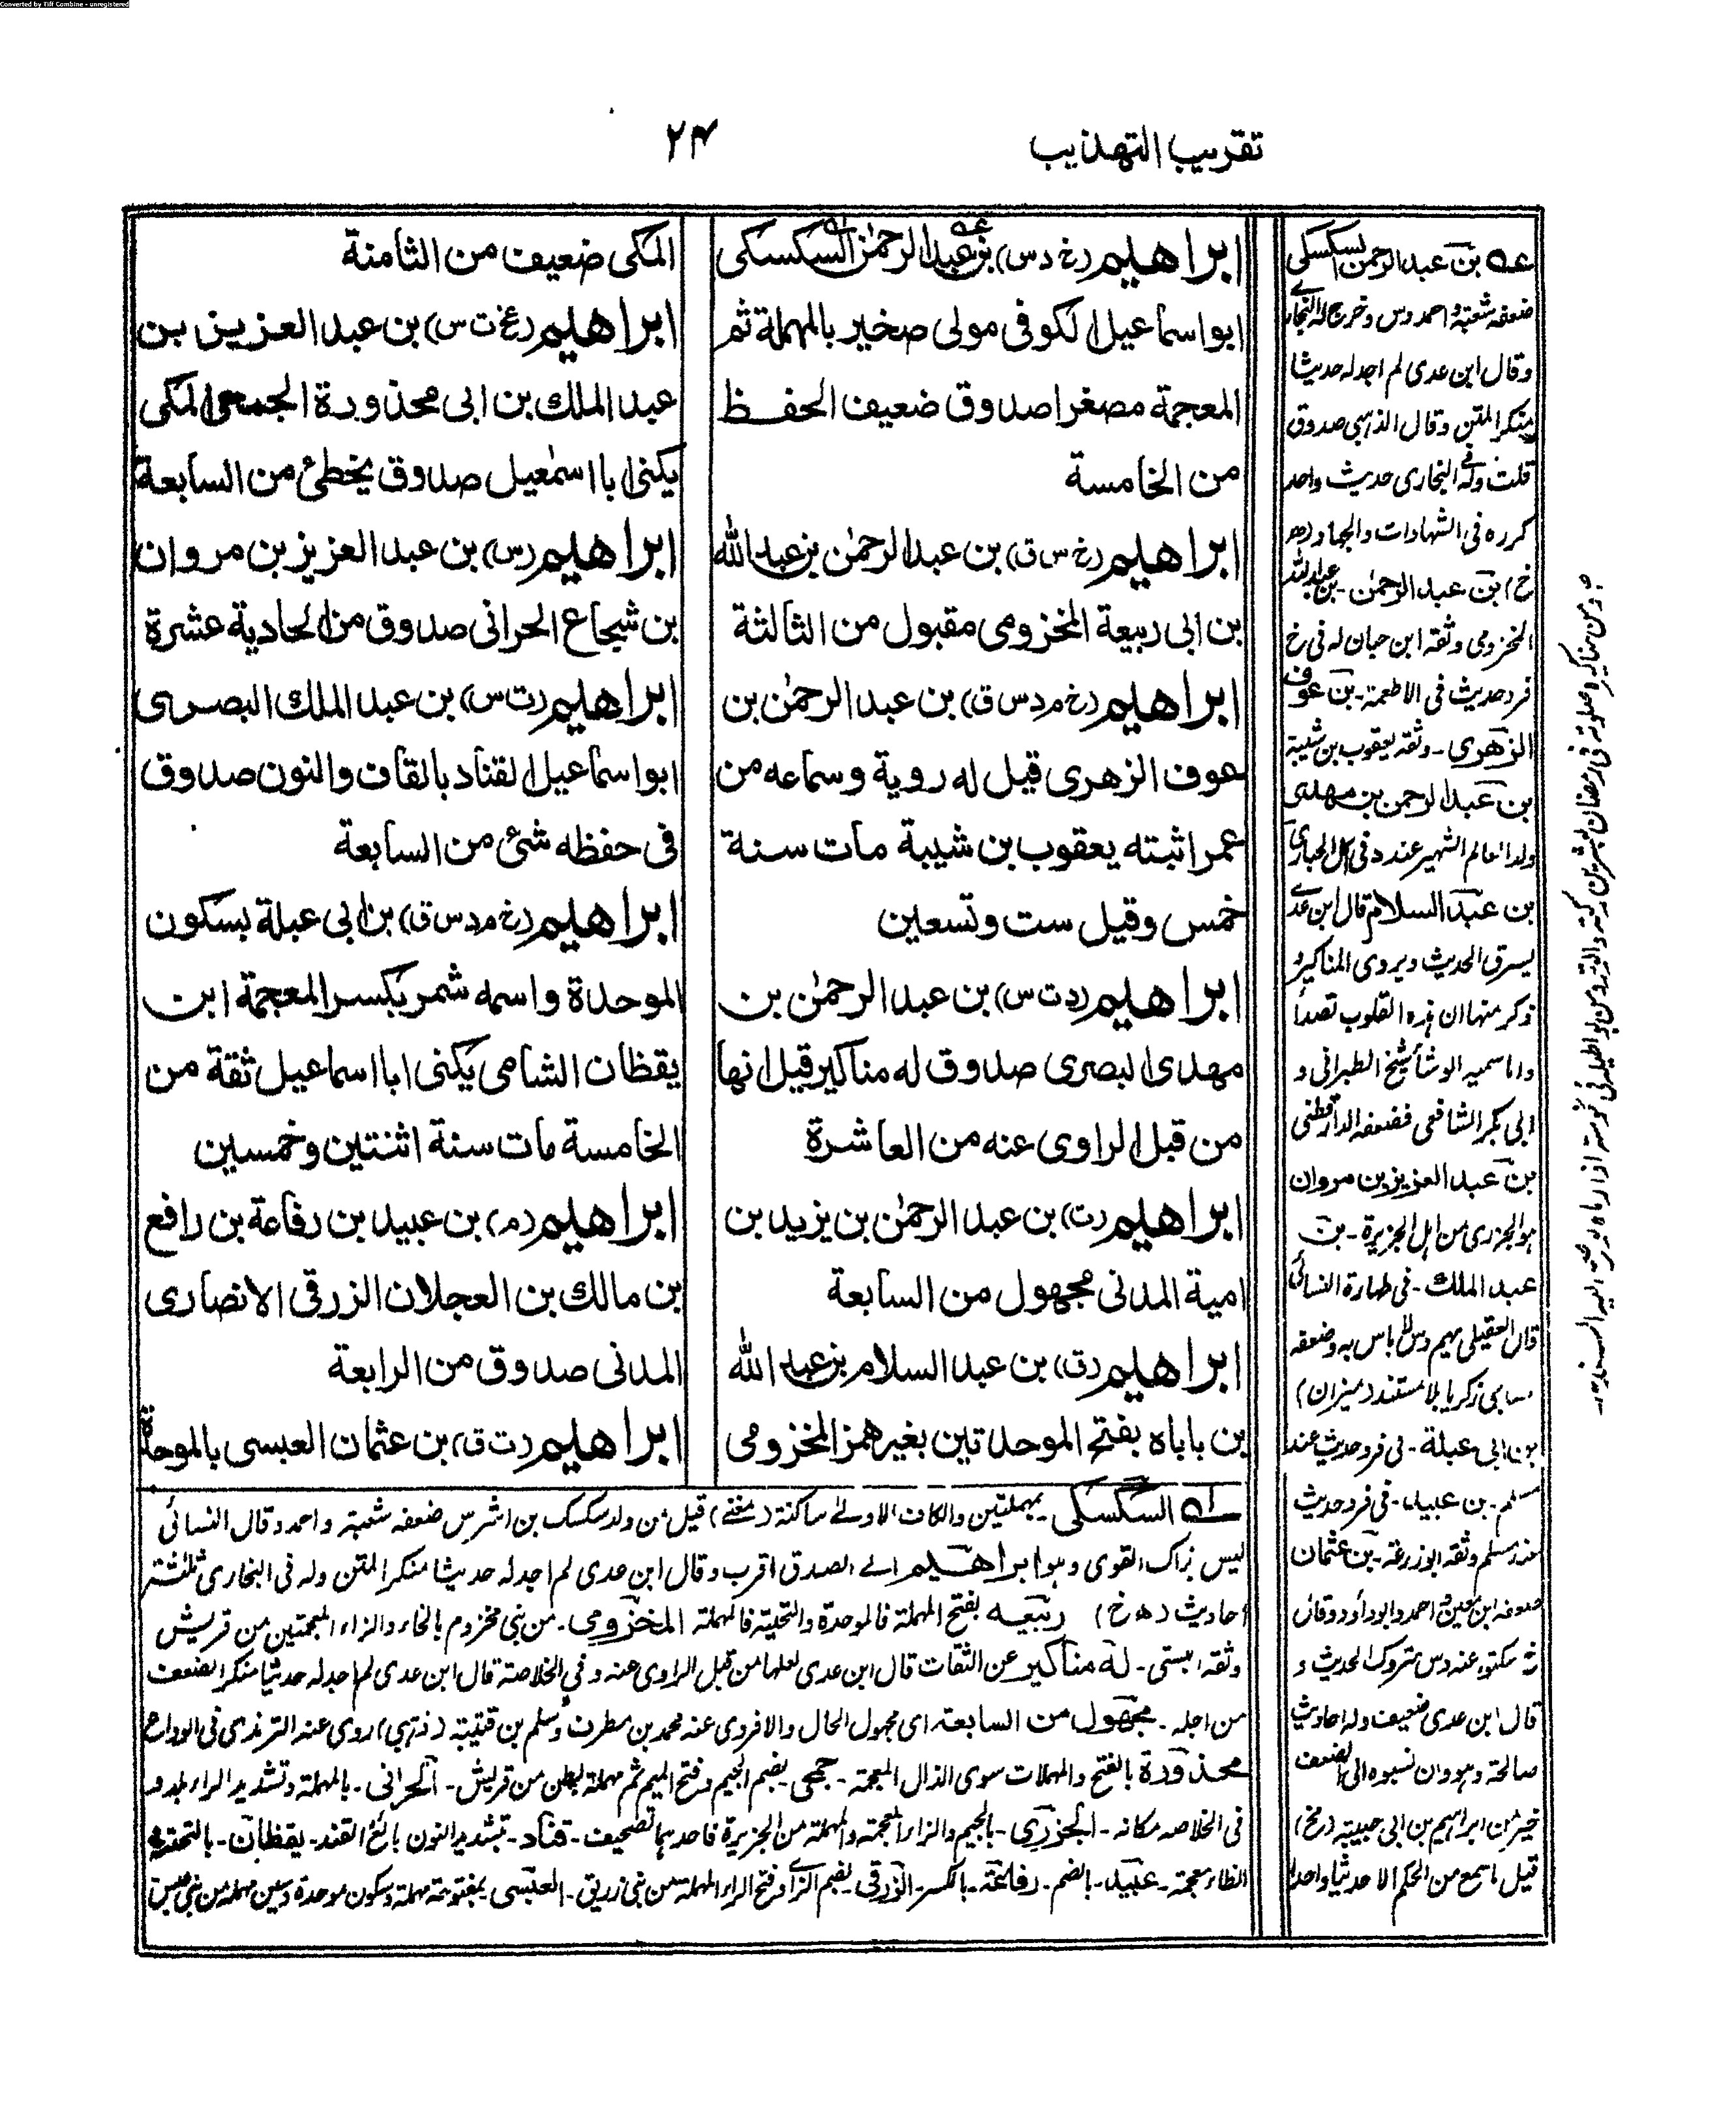 Converted by Tiff Combine - unregistered
تقريب التهذيب
۲۴
ابراهيم (خ د س) بن عبد الرحمٰن السكسكى
ابو اسماعيل الكوفى مولى صخير بالمهملة ثم
المعجمة مصغرا صدوق ضعيف الحفظ
من الخامسة
ابراهيم (خ س ق) بن عبد الرحمٰن بن عبد الله
بن ابى ربيعة المخزومى مقبول من الثالثة
ابراهيم (خ م د س ق) بن عبد الرحمٰن بن
عوف الزهرى قيل له روية وسماعه من
عمر اثبته يعقوب بن شيبة مات سنة
خمس وقيل ست وتسعين
ابراهيم (د ت س) بن عبد الرحمٰن بن
مهدى البصرى صدوق له مناكير قيل انها
من قبل الراوى عنه من العاشرة
ابراهيم (ت) بن عبد الرحمٰن بن يزيد بن
امية المدنى مجهول من السابعة
ابراهيم (ق) بن عبد السلام بن عبد الله
بن باباه بفتح الموحدتين بغير همز المخزومى
المكى ضعيف من الثامنة
ابراهيم (عخ ت س) بن عبد العزيز بن
عبد الملك بن ابى محذورة الجمحى المكى
يكنى ابا اسمٰعيل صدوق يخطئ من السابعة
ابراهيم (س) بن عبد العزيز بن مروان
بن شجاع الحرانى صدوق من الحادية عشرة
ابراهيم (ت س) بن عبد الملك البصرى
ابو اسماعيل القناد بالقاف والنون صدوق
فى حفظه شئ من السابعة
ابراهيم (خ م د س ق) بن ابى عبلة بسكون
الموحدة واسمه شمر بكسر المعجمة ابن
يقظان الشامى يكنى ابا اسماعيل ثقة من
الخامسة مات سنة اثنتين وخمسين
ابراهيم (م) بن عبيد بن رفاعة بن رافع
بن مالك بن العجلان الزرقى الانصارى
المدنى صدوق من الرابعة
ابراهيم (ت ق) بن عثمان العبسى بالموحدة
بن عبد الرحمن السكسكى
ضعفه شعبة و احمد وس وخرج له البخارى
وقال ابن عدى لم اجد له حديثا
منكر المتن وقال الذهبى صدوق
قلت وله فى البخارى حديث واحد
كرره فى الشهادات والجهاد
خ) بن عبد الرحمٰن - بن عبد الله
المخزومى وثقه ابن حبان له فى خ
فرد حديث فى الاطعمة - بن عوف
الزهرى - وثقه يعقوب بن شيبة
بن عبد الرحمن بن مهدى
ولد العالم الشهير عنده فى
بن عبد السلام قال ابن عدى
يسرق الحديث ويروى المناكير و
ذكر منها ان هذه القلوب تصدأ
واما سميه الوشاء شيخ الطبرانى و
ابى بكر الشافعى فضعفه الدارقطنى
بن عبد العزيز بن مروان
هو الجزرى من اهل الجزيرة - بن
عبد الملك - فى طهارة النسائى
قال العقيلى يهم وس لا باس به وضعفه
زكريا بلا مستند (ميزان)
بن ابى عبلة - فى فرد حديث عند
مسلم - بن عبيد - فى فرد حديث
عند مسلم وثقه ابو زرعة - بن عثمان
ضعفه ابن معين و احمد وابو داؤد وقال
سكتوا عنه وس متروك الحديث و
قال ابن عدى ضعيف وله احاديث
صالحة وهو وان نسبوه الى الضعف
خير من ابراهيم بن ابى حبيبة (مخ)
قيل ما سمع من الحكم الا حديثا واحدا
السكسكى بمهملتين والكاف الاولى ساكنة (مغنى) قيل من ولد سكسك بن اشرس ضعفه شعبة و احمد وقال النسائى
ليس بذاك القوى وهو ابراهيم الى الصدق اقرب وقال ابن عدى لم اجد له حديثا منكر المتن وله فى البخارى ثلثة
احاديث (خ) ربيعه بفتح المهملة فالموحدة والتحتية فالمهملة المخزومى - من بنى مخزوم بالخاء والزاء المعجمتين من قريش
وثقه البستى - له مناكير عن الثقات قال ابن عدى لعلها من قبل الراوى عنه و فى الخلاصة قال ابن عدى لم اجد له حديثا منكرا الضعف
من اجله - مجهول من السابعة اى مجهول الحال والا فروى عنه محمد بن مطرف وسلم بن قتيبة (ذهبى) روى عنه الترمذى فى الوداع
محذورة بالفتح والمهملات سوى الذال المعجمة - جمحى بضم الجيم وفتح الميم ثم مهملة بطن من قريش - الحرانى - بالمهملة وتشديد الراء
فى الخلاصه مكانه - الجزرى - بالجيم والزاء المعجمة والمهملة من الجزيرة فاحدهما تصحيف - قناد - بتشديد النون بائع القند - يقظان - بالتحتية و
الظاء معجمة - عبيد - بالضم - رفاعة - بالكسر - الزرقى بضم الزاى وفتح الراء المهملة من بنى زريق - العبسى بمفتوحة مهملة وسكون موحدة وسين مهملة من بنى عبس